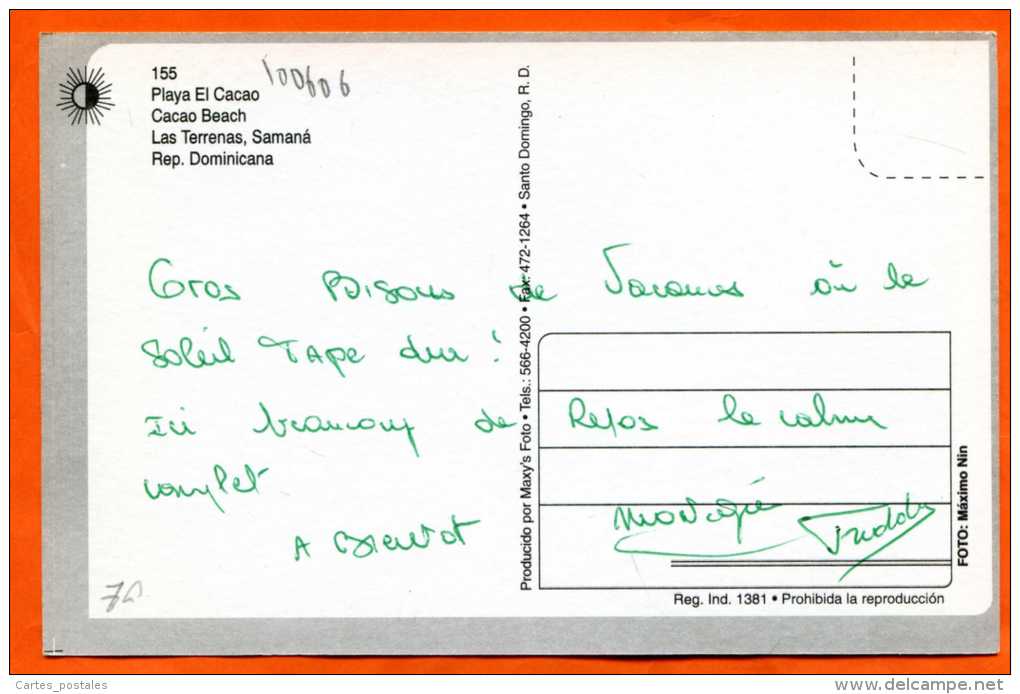 155
Playa El Cacao
Cacao Beach
Las Terrenas, Samaná
Rep. Dominicana
100606
Gros Bisous de Vacances où le
soleil TAPE dur !
Ici beaucoup de Repos le calme
complet
A Bientot
Freddy
Producido por Maxy's Foto • Tels.: 566-4200 • Fax: 472-1264 • Santo Domingo, R. D.
FOTO: Máximo Nin
Reg. Ind. 1381 • Prohibida la reproducción
Cartes_postales
delcampe.net